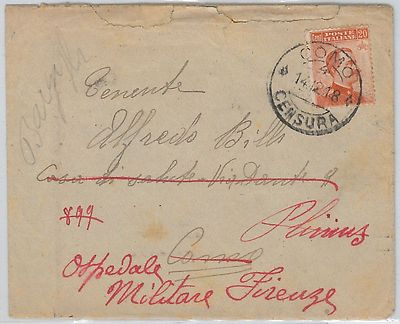 POSTE ITALIANE 20
COMO
4
14.12.18
CENSURA
Tenente
Alfredo Billi
Casa di salute - Via Dante 9
899
Como
Ospedale
Militare Firenze